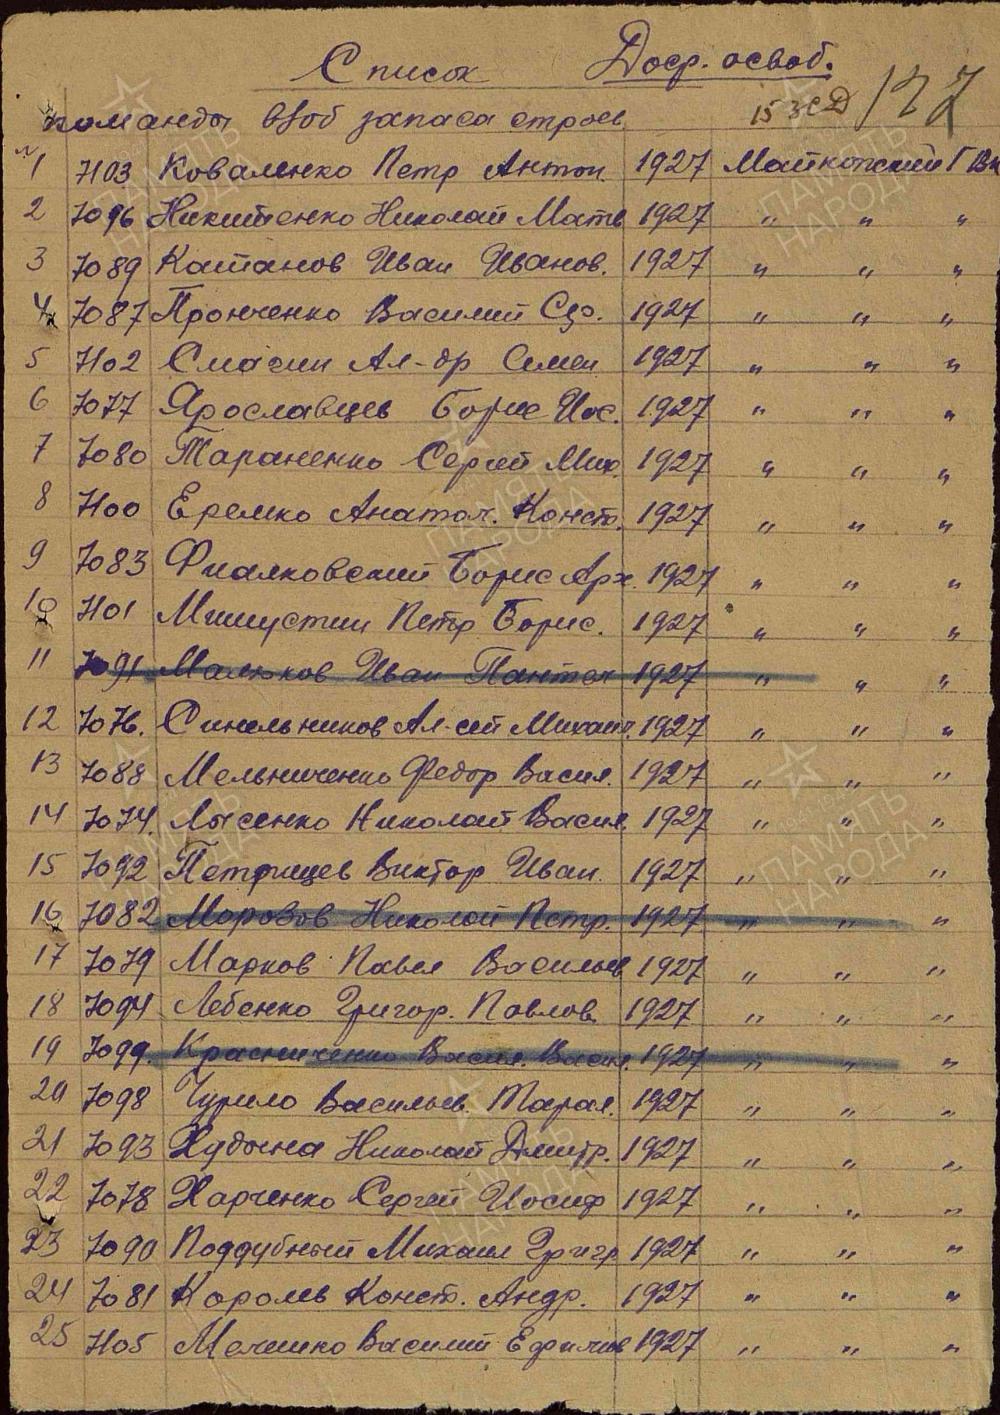 Список Доср. освоб.
команды в/об запаса строев
15 ЗСД 127
1 7103 Коваленко Петр Антон. 1927 Майкопский ГВК
2 7096 Никитенко Николай Матв 1927 " " "
3 7089 Катанов Иван Иванов. 1927 " " "
4 7087 Пронченко Василий 1927 " " "
5 7102 Смагин Ал-др Семен 1927 " " "
6 7077 Ярославцев Борис Иос. 1927 " " "
7 7080 Тараненко Сергей Мих. 1927 " " "
8 7100 Еремко Анатол. Конст. 1927 " " "
9 7083 Фиалковский Борис Арх. 1927 " " "
10 7101 Мишустин Петр Борис. 1927 " " "
11 7091 Малюков Иван Пантел 1927 " " "
12 7076. Синельников Ал-сей Михаил. 1927 " " "
13 7088 Мельниченко Федор Васил. 1927 " " "
14 7074. Лысенко Николай Васил. 1927 " " "
15 7092 Петрищев Виктор Иван. 1927 " " "
16 7082 Морозов Николай Петр. 1927 " " "
17 7079 Марков Павел Васильев 1927 " " "
18 7094 Лебенко Григор. Павлов. 1927 " " "
19 7099. Красниченко Васил. Васил. 1927 " " "
20 7098 Чурило Васильев. Тарас. 1927 " " "
21 7093 Худына Николай Дмитр. 1927 " " "
22 7078 Харченко Сергей Иосиф 1927 " " "
23 7090 Поддубный Михаил Григр 1927 " " "
24 7081 Королев Конст. Андр. 1927 " " "
25 7105 Мелешко Василий Ефимов 1927 " " "
ПАМЯТЬ
НАРОДА